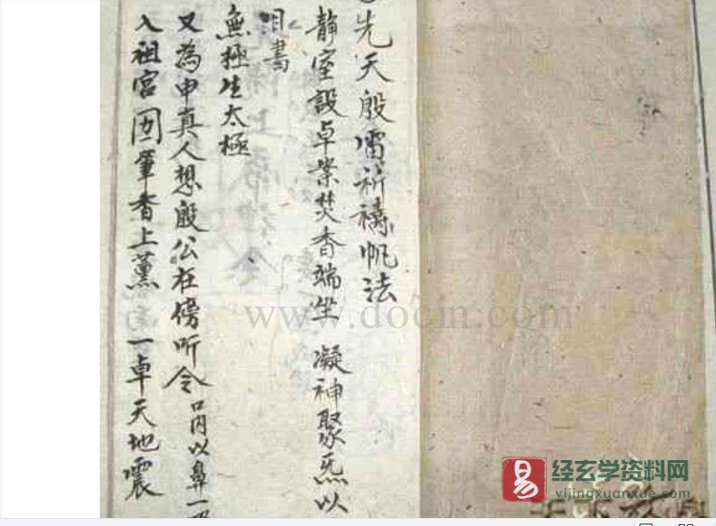 先天殷雷祈禱帆法
静室設卓案焚香端坐 凝神聚炁以
目書
無極生太極
又為申真人想殷公在傍听令口内以鼻一
入祖宮 筆香上薰 一卓天地震
www.docin.com
易 经玄学资料网
vijingxuanxue.com